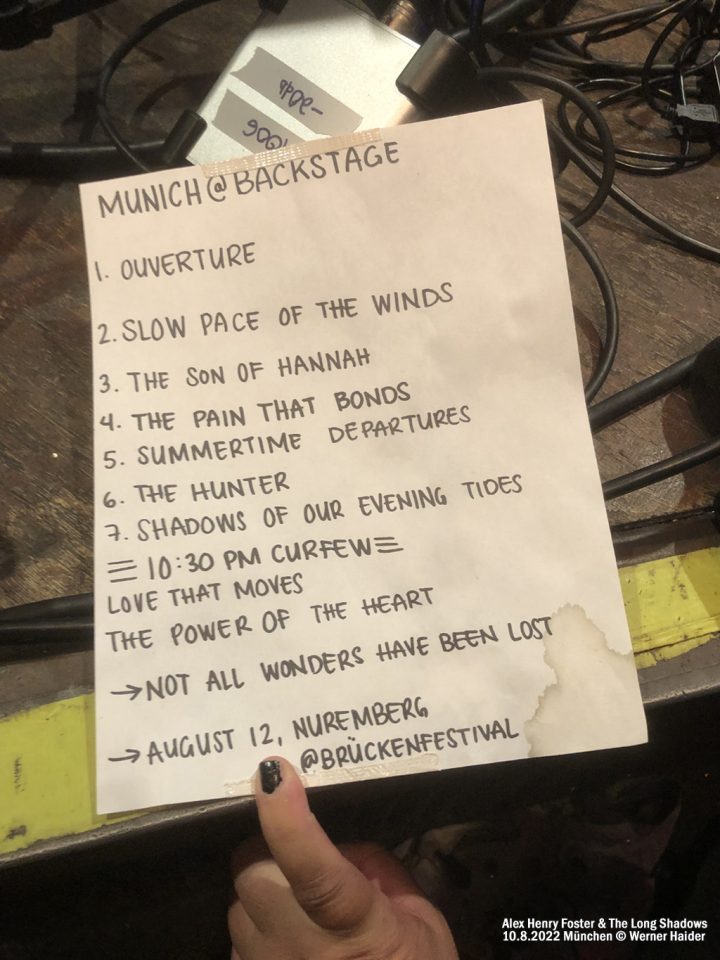 MUNICH@BACKSTAGE
1. OUVERTURE
2. SLOW PACE OF THE WINDS
3. THE SON OF HANNAH
4. THE PAIN THAT BONDS
5. SUMMERTIME DEPARTURES
6. THE HUNTER
7. SHADOWS OF OUR EVENING TIDES
10:30 PM CURFEW
LOVE THAT MOVES
THE POWER OF THE HEART
→NOT ALL WONDERS HAVE BEEN LOST
→AUGUST 12, NUREMBERG
@BRÜCKENFESTIVAL
Alex Henry Foster & The Long Shadows
10.8.2022 München © Werner Haider